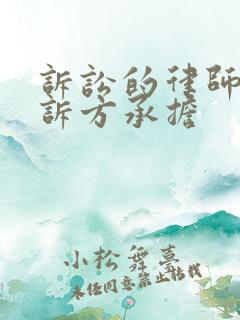 訴訟的律師
訴方承擔
小松舞墓
未任同意禁止轉載